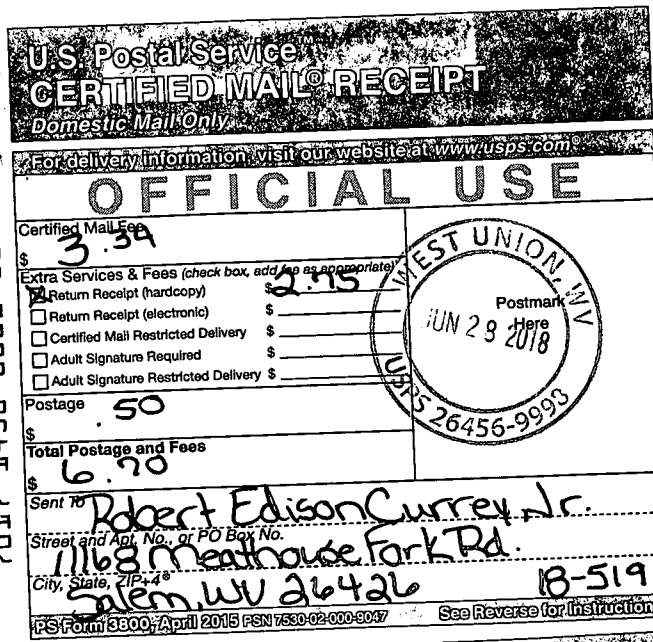 U.S. Postal Service™
CERTIFIED MAIL® RECEIPT
Domestic Mail Only
For delivery information, visit our website at www.usps.com®
OFFICIAL USE
Certified Mail Fee
$ 3.34
Extra Services & Fees (check box, add fee as appropriate)
Return Receipt (hardcopy) $ 2.75
Return Receipt (electronic) $
Certified Mail Restricted Delivery $
Adult Signature Required $
Adult Signature Restricted Delivery $
Postmark
Here
WEST UNION, WV
JUN 28 2018
USPS 26456-9998
Postage
$ .50
Total Postage and Fees
$ 6.70
Sent To Robert Edison Currey, Jr.
Street and Apt. No., or PO Box No.
11168 Meathouse Fork Rd.
City, State, ZIP+4®
Salem, WV 26426 18-519
PS Form 3800, April 2015 PSN 7530-02-000-9047 See Reverse for Instruction